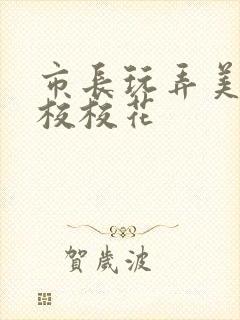 市長玩弄美
校校花
賀歲波